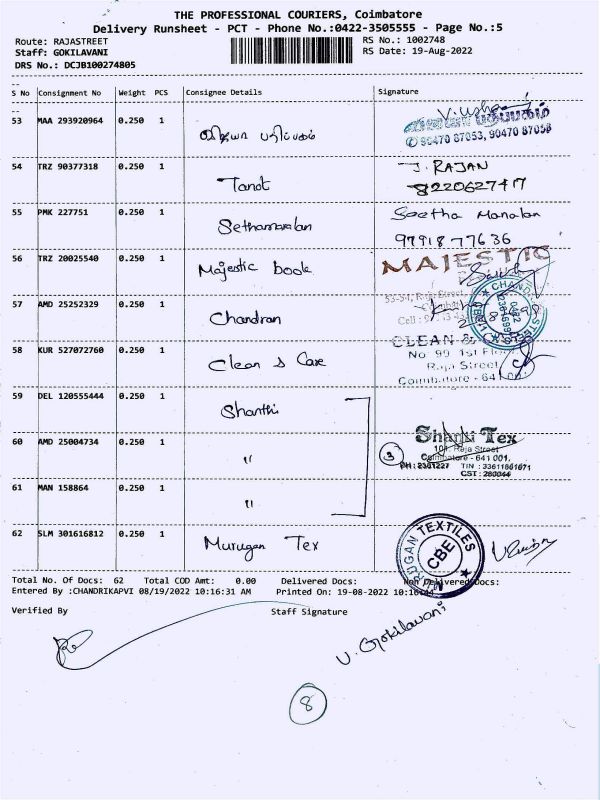 THE PROFESSIONAL COURIERS, Coimbatore
Delivery Runsheet - PCT - Phone No.:0422-3505555 - Page No.:5
Route: RAJASTREET RS No.: 1002748
Staff: GOKILAVANI RS Date: 19-Aug-2022
DRS No.: DCJB100274805
S No Consignment No Weight PCS Consignee Details Signature
53 MAA 293920964 0.250 1 விஜயா பதிப்பகம்
விஜயா பதிப்பகம்
90470 87053, 90470 87058
54 TRZ 90377318 0.250 1 Tanot J. RAJAN
8220627417
55 PMK 227751 0.250 1 Sethamanalan Seetha Manalan
9791877636
56 TRZ 20025540 0.250 1 Majestic book MAJESTIC
53-54, Raja Street,
57 AMD 25252329 0.250 1 Chandran
Cell :
58 KUR 527072760 0.250 1 Clean & Care CLEAN &
No 99 1st Floor
Raja Street
Coimbatore - 641
59 DEL 120555444 0.250 1 Shanthi
60 AMD 25004734 0.250 1 " 3 Shanti Tex
Raja Street
Coimbatore - 641 001.
PH : 2391227 TIN : 33611801671
CST : 280044
61 MAN 158864 0.250 1 "
62 SLM 301616812 0.250 1 Murugan Tex MURUGAN TEXTILES
CBE
Total No. Of Docs: 62 Total COD Amt: 0.00 Delivered Docs: Non Delivered Docs:
Entered By :CHANDRIKAPVI 08/19/2022 10:16:31 AM Printed On: 19-08-2022 10:16:44
Verified By Staff Signature
V. Gokilavani
8